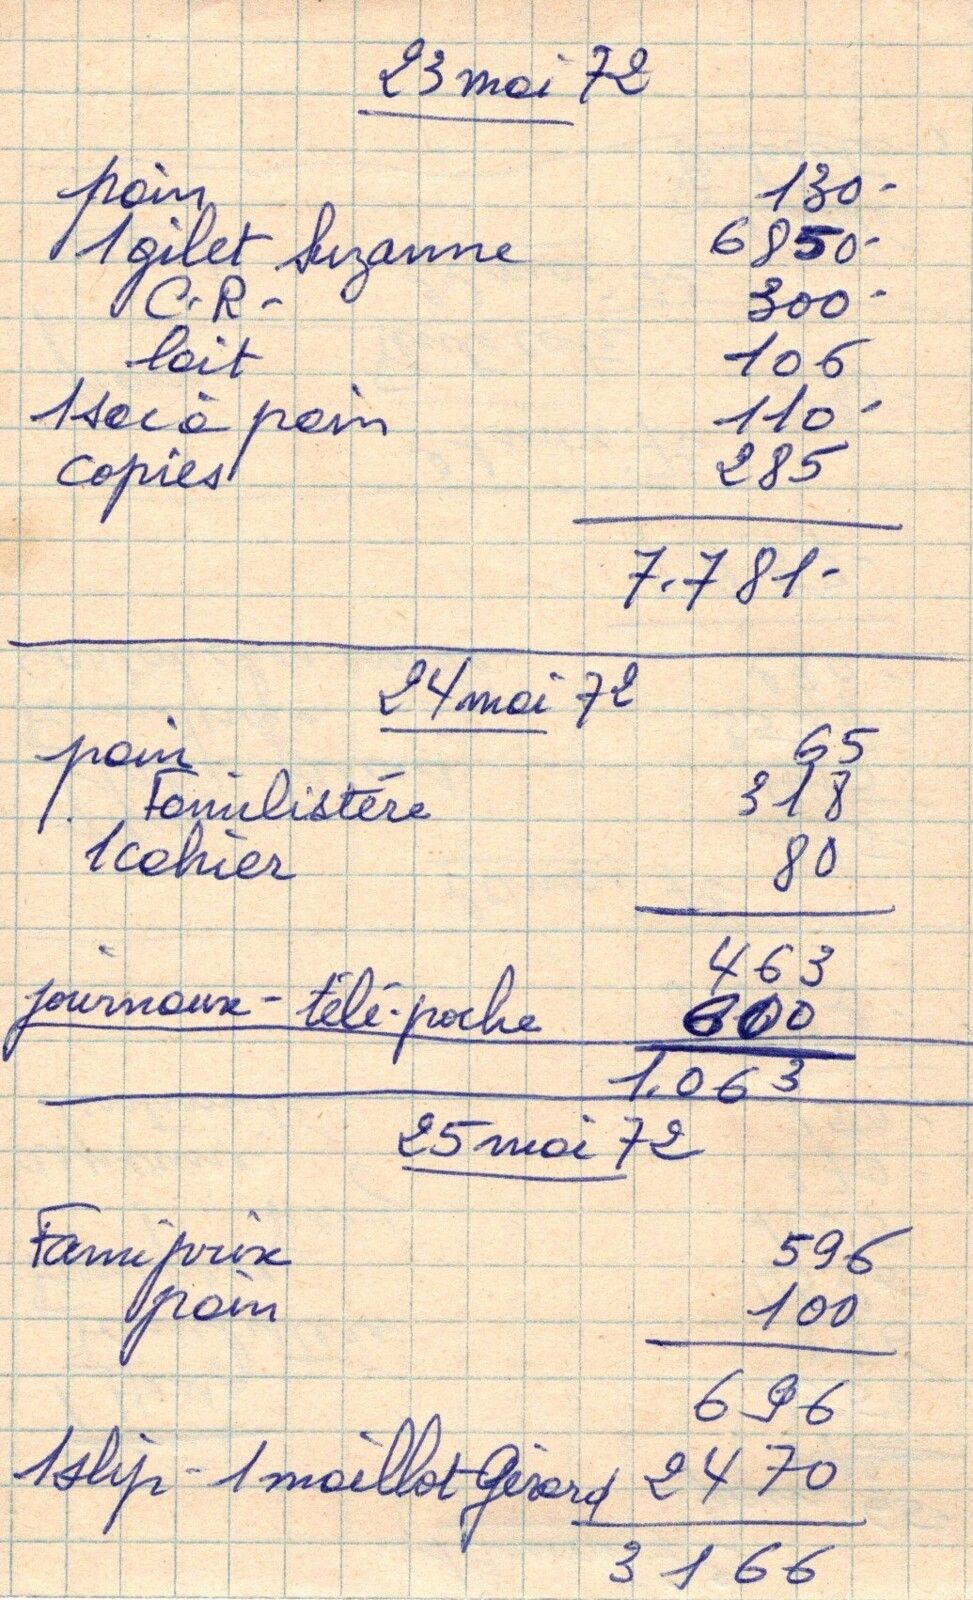 23 mai 72
pain 130-
1 gilet Suzanne 6850-
C.R- 300-
lait 106
1 sac à pain 110-
copies 285
7.781-
24 mai 72
pain 65
Familistére 318
1 cahier 80
463
journaux - télé-poche 600
1.063
25 mai 72
Famiprix 596
pain 100
696
1 slip - 1 maillot Gérard 2470
3166